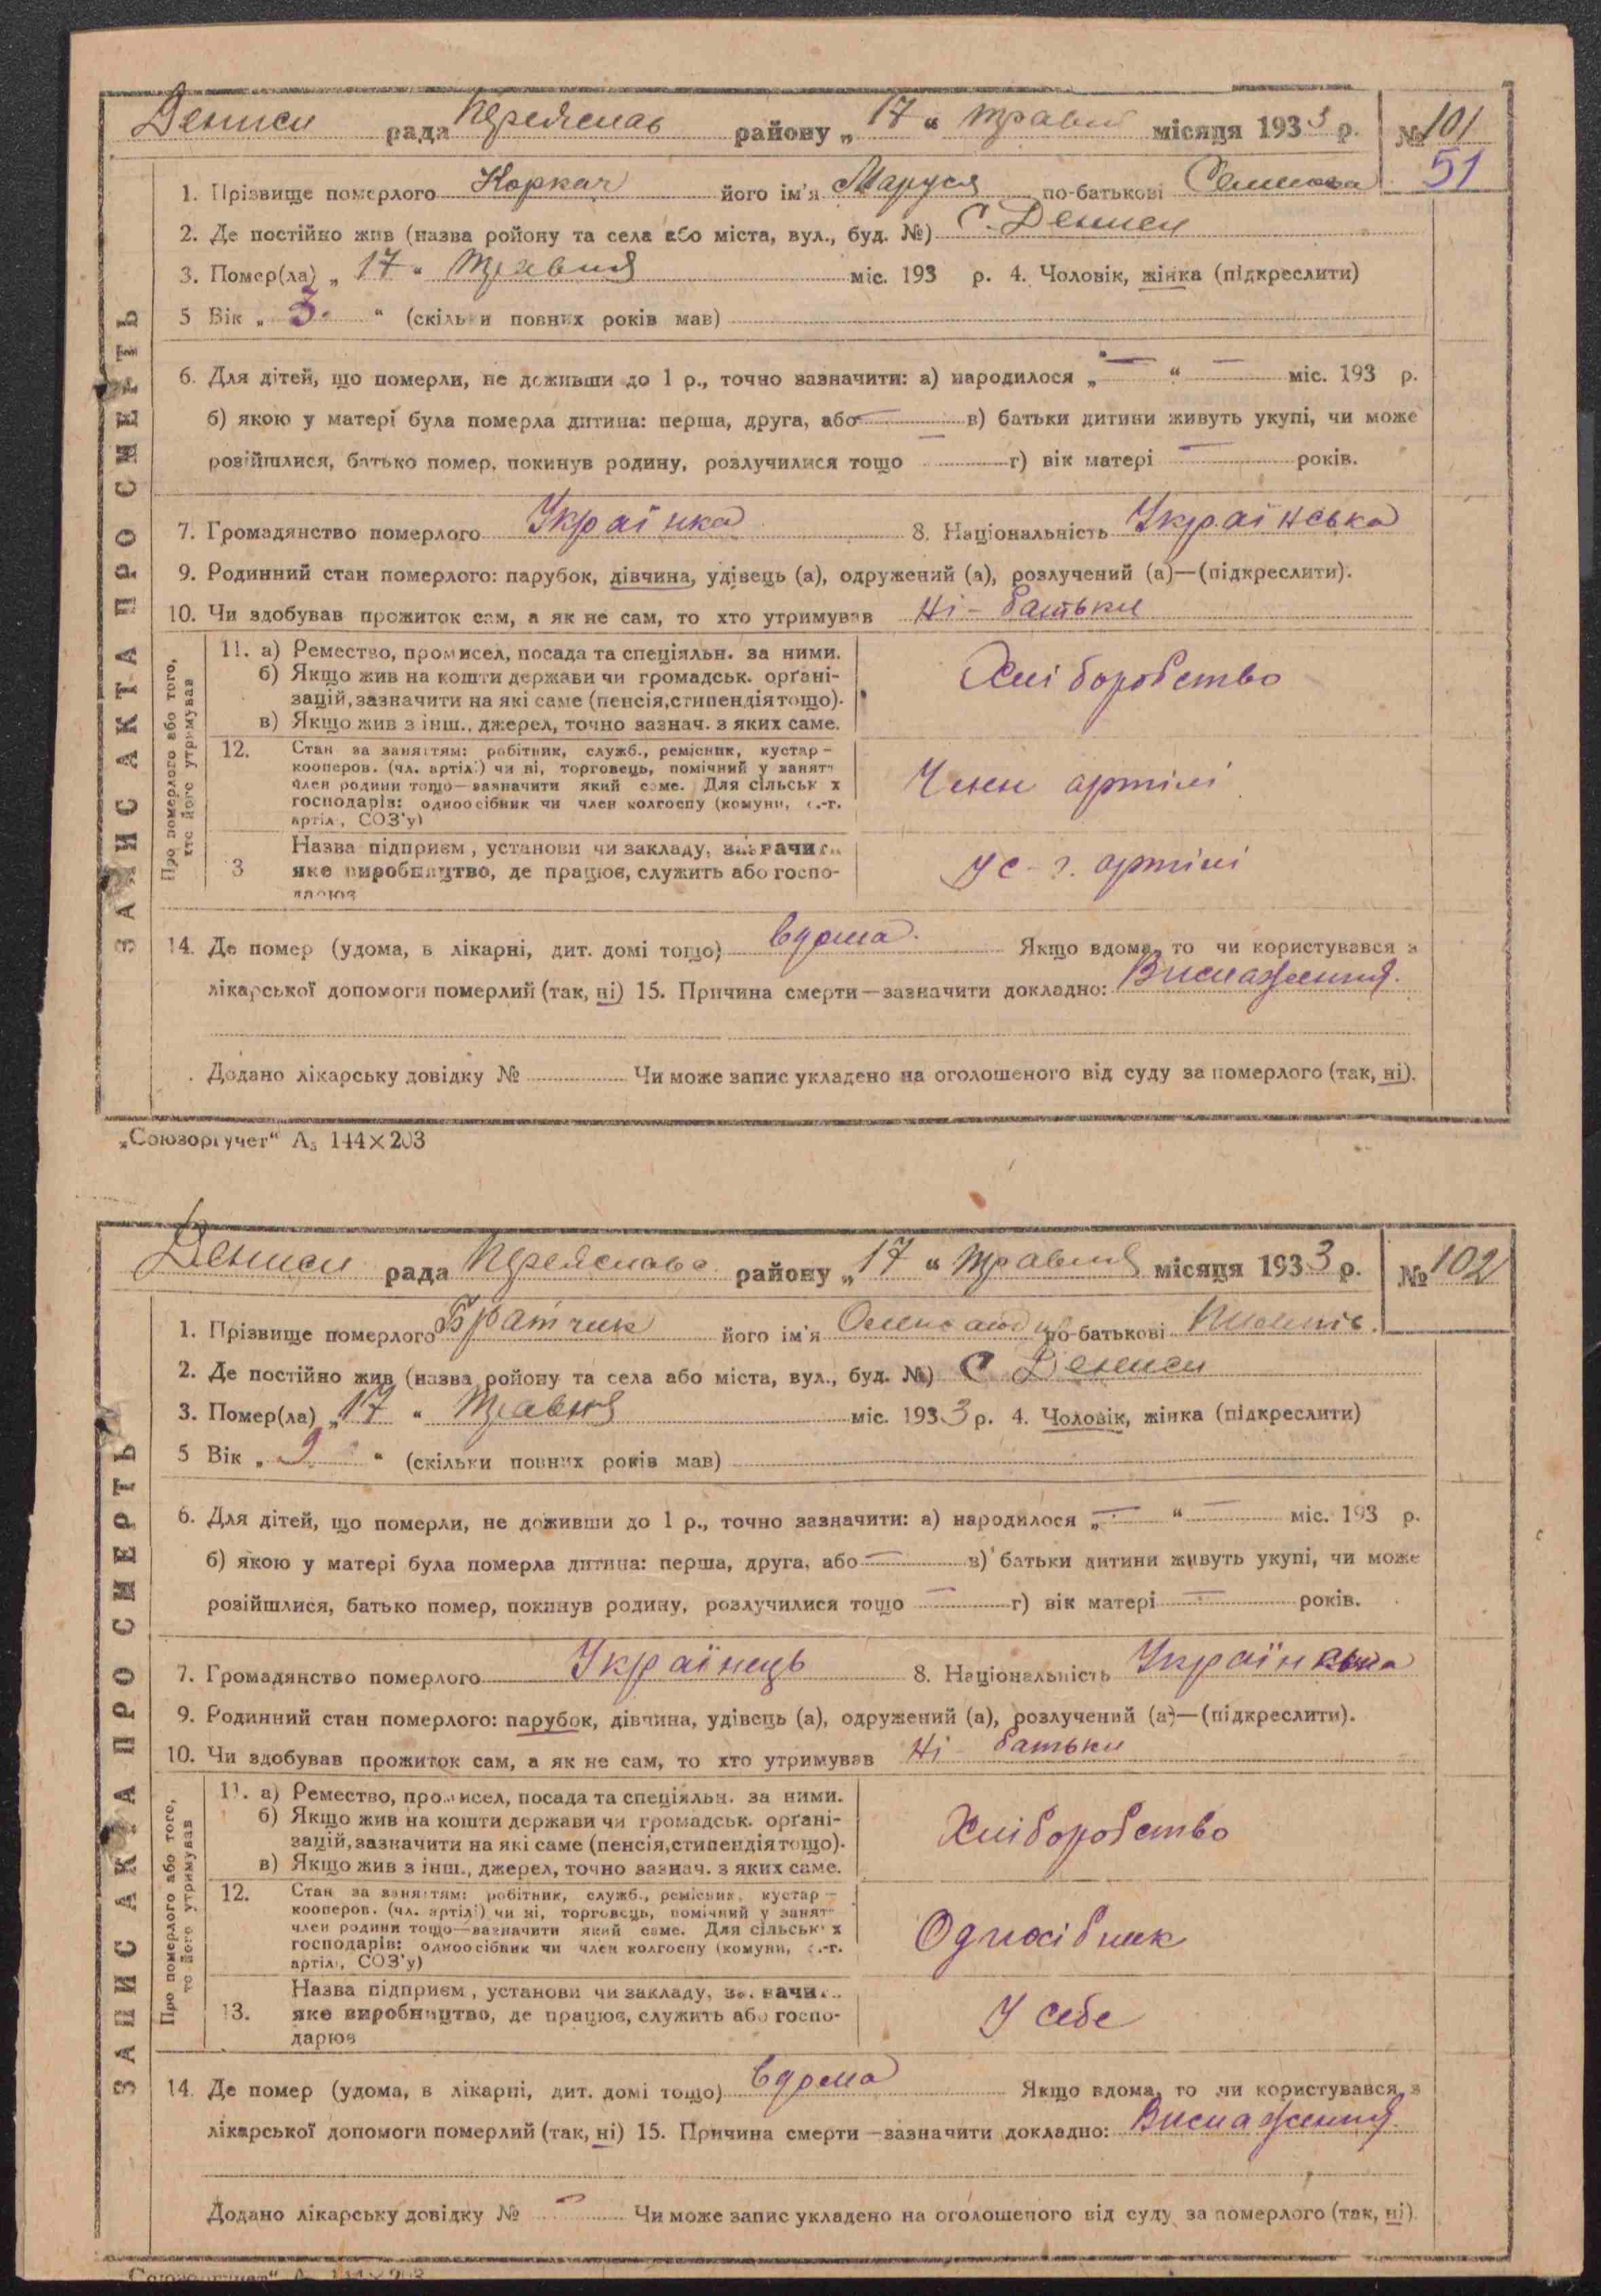 Дениси рада Переяслав району „17“ травня місяця 1933 р. № 101
51
1. Прізвище померлого Коркач його ім'я Маруся по-батькові
2. Де постійно жив (назва ройону та села або міста, вул., буд. №) С. Дениси
3. Помер(ла) „17“ Травня міс. 193 р. 4. Чоловік, жінка (підкреслити)
5 Вік „3.“ (скільки повних років мав)
6. Для дітей, що померли, не доживши до 1 р., точно зазначити: а) народилося „—“ — міс. 193 р.
б) якою у матері була померла дитина: перша, друга, або — в) батьки дитини живуть укупі, чи може
розійшлися, батько помер, покинув родину, розлучилися тощо — г) вік матері — років.
7. Громадянство померлого Українка 8. Національність Українська
9. Родинний стан померлого: парубок, дівчина, удівець (а), одружений (а), розлучений (а)—(підкреслити).
10. Чи здобував прожиток сам, а як не сам, то хто утримував Ні - батьки
Про померлого або того, хто його утримував
11. а) Ремество, промисел, посада та спеціяльн. за ними.
б) Якщо жив на кошти держави чи громадськ. орґані-
зацій, зазначити на які саме (пенсія, стипендія тощо).
в) Якщо жив з інш., джерел, точно зазнач. з яких саме.
Хліборобство
12. Стан за заняттям: робітник, служб., ремісник, кустар –
кооперов. (чл. артілі) чи ні, торговець, помічний у занятт
член родини тощо—зазначити який саме. Для сільськ х
господарів: одноосібник чи член колгоспу (комуни, с.-г.
артілі, СОЗ'у)
Член артілі
3 Назва підприєм, установи чи закладу, зазначити
яке виробництво, де працює, служить або госпо-
дарює
У с-г. артілі
14. Де помер (удома, в лікарні, дит. домі тощо) вдома. Якщо вдома, то чи користувався з
лікарської допомоги померлий (так, ні) 15. Причина смерти—зазначити докладно: Виснаження.
Додано лікарську довідку № Чи може запис укладено на оголошеного від суду за померлого (так, ні).
ЗАПИС АКТА ПРО СМЕРТЬ
„Союзоргучет“ А₅ 144×203
Дениси рада району „17“ травня місяця 1933 р. № 102
1. Прізвище померлого Братчик його ім'я по-батькові
2. Де постійно жив (назва ройону та села або міста, вул., буд. №) С Дениси
3. Помер(ла) „17“ Травня міс. 1933 р. 4. Чоловік, жінка (підкреслити)
5 Вік „9“ (скільки повних років мав)
6. Для дітей, що померли, не доживши до 1 р., точно зазначити: а) народилося „—“ — міс. 193 р.
б) якою у матері була померла дитина: перша, друга, або — в) батьки дитини живуть укупі, чи може
розійшлися, батько помер, покинув родину, розлучилися тощо — г) вік матері — років.
7. Громадянство померлого Українець 8. Національність
9. Родинний стан померлого: парубок, дівчина, удівець (а), одружений (а), розлучений (а)—(підкреслити).
10. Чи здобував прожиток сам, а як не сам, то хто утримував Ні - батьки
Про померлого або того, то його утримував
11. а) Ремество, промисел, посада та спеціяльн. за ними.
б) Якщо жив на кошти держави чи громадськ. орґані-
зацій, зазначити на які саме (пенсія, стипендія тощо).
в) Якщо жив з інш., джерел, точно зазнач. з яких саме.
Хліборобство
12. Стан за заняттям: робітник, служб., ремісник, кустар –
кооперов. (чл. артілі) чи ні, торговець, помічний у занятт
член родини тощо—зазначити який саме. Для сільськ х
господарів: одноосібник чи член колгоспу (комуни, с.-г.
артілі, СОЗ'у)
Односібник
13. Назва підприєм, установи чи закладу, зазначити
яке виробництво, де працює, служить або госпо-
дарює
У себе
14. Де помер (удома, в лікарні, дит. домі тощо) вдома Якщо вдома, то чи користувався з
лікарської допомоги померлий (так, ні) 15. Причина смерти—зазначити докладно: Виснаження.
Додано лікарську довідку № — Чи може запис укладено на оголошеного від суду за померлого (так, ні).
ЗАПИС АКТА ПРО СМЕРТЬ
„Союзоргучет“ А₅ 144×203